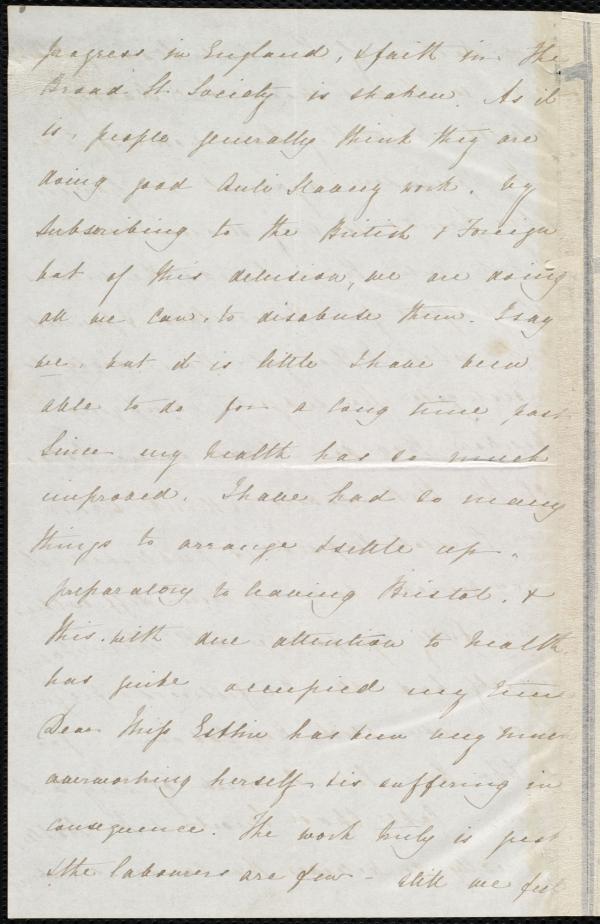 progress in England, & faith in the
Broad St. Society is shaken. As it
is, people generally think they are
doing good Anti Slavery work, by
subscribing to the British & Foreign
but of this delusion, we are doing
all we can, to disabuse them. I say
we, but it is little I have been
able to do for a long time past
Since my health has so much
improved, I have had so many
things to arrange & settle up,
preparatory to leaving Bristol, &
this, with due attention to health
has quite occupied my time
Dear Miss Estlin has been very much
overworking herself & is suffering in
consequence. The work truly is great
& the labourers are few - still we feel